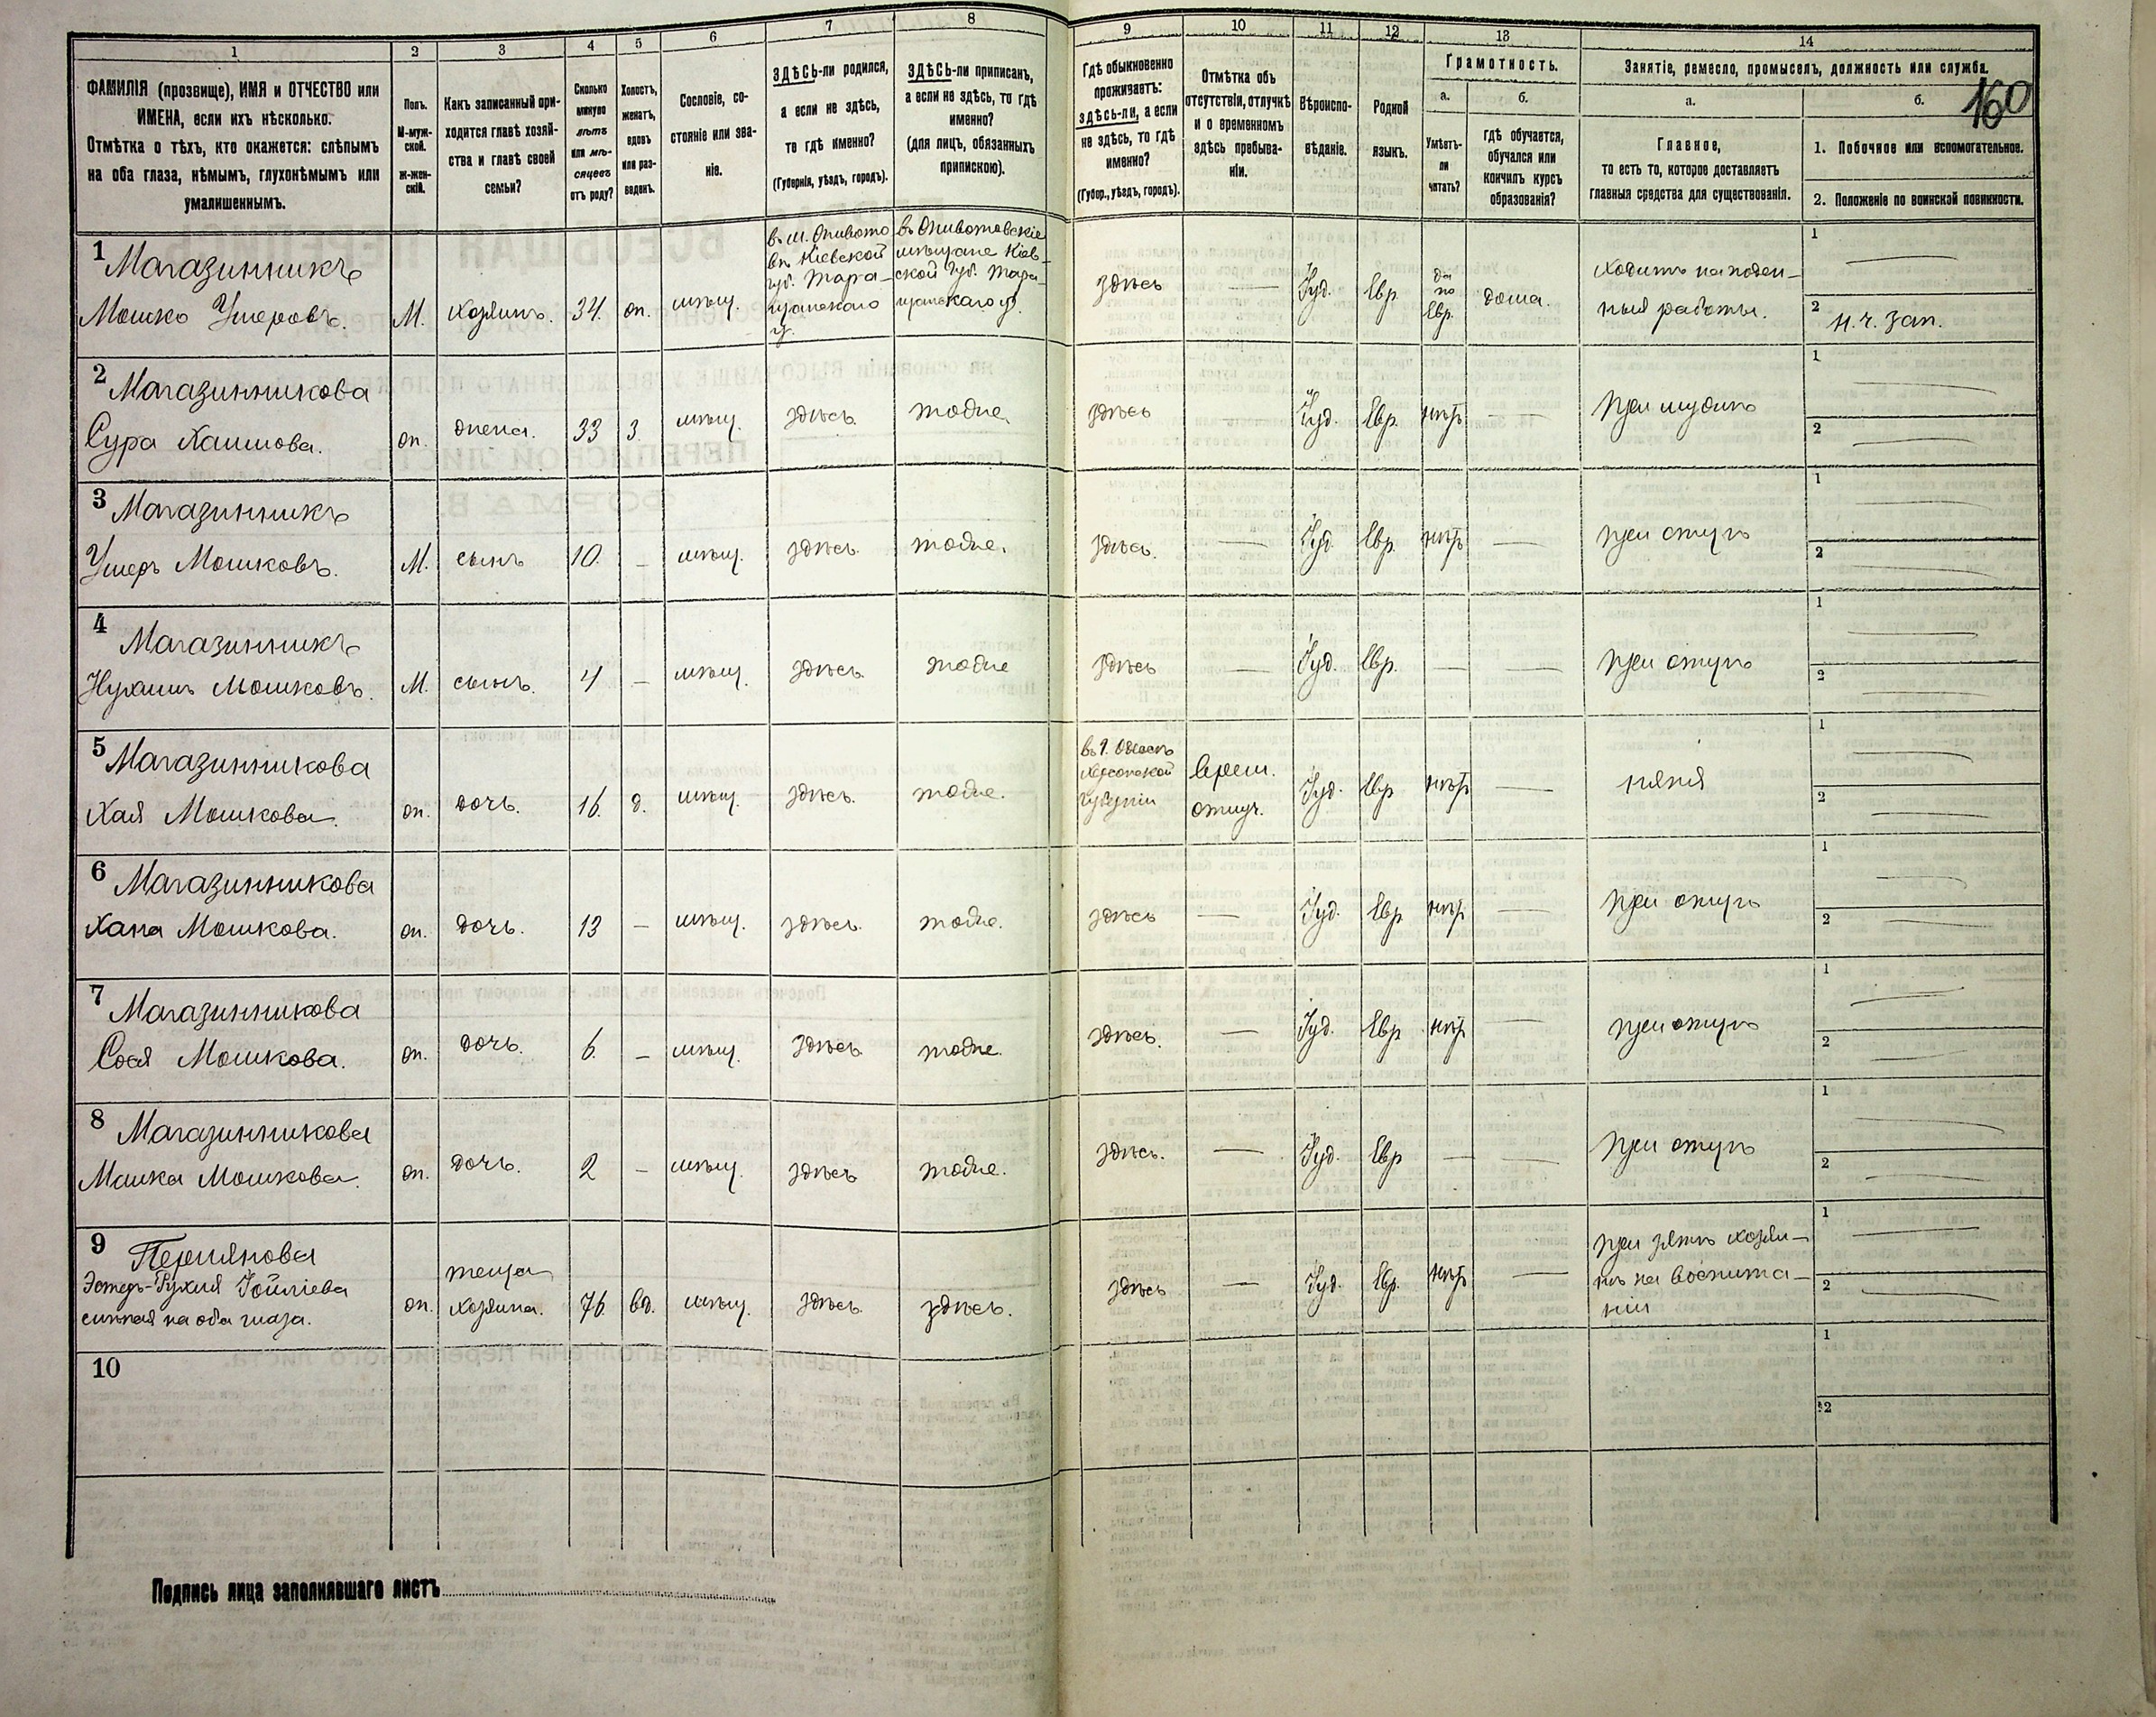 1 2 3 4 5 6 7 8 9 10 11 12 13 14
160
ФАМИЛІЯ (прозвище), ИМЯ и ОТЧЕСТВО или
ИМЕНА, если ихъ нѣсколько.
Отмѣтка о тѣхъ, кто окажется: слѣпымъ
на оба глаза, нѣмымъ, глухонѣмымъ или
умалишеннымъ.
Полъ.
М-муж-
ской.
Ж-жен-
скій.
Какъ записанный при-
ходится главѣ хозяй-
ства и главѣ своей
семьи?
Сколько
минуло
лѣтъ
или мѣ-
сяцевъ
отъ роду?
Холостъ,
женатъ,
вдовъ
или раз-
веденъ.
Сословіе, со-
стояніе или зва-
ніе.
ЗДѢСЬ-ли родился,
а если не здѣсь,
то гдѣ именно?
(Губернія, уѣздъ, городъ).
ЗДѢСЬ-ли приписанъ,
а если не здѣсь, то гдѣ
именно?
(для лицъ, обязанныхъ
припискою).
Гдѣ обыкновенно
проживаетъ:
здѣсь-ли, а если
не здѣсь, то гдѣ
именно?
(Губер., уѣздъ, городъ).
Отмѣтка объ
отсутствіи, отлучкѣ
и о временномъ
здѣсь пребыва-
ніи.
Вѣроиспо-
вѣданіе.
Родной
языкъ.
Грамотность.
а.
Умѣетъ-
ли
читать?
б.
гдѣ обучается,
обучался или
кончилъ курсъ
образованія?
Занятіе, ремесло, промыселъ, должность или служба.
а.
Главное,
то есть то, которое доставляетъ
главныя средства для существованія.
б.
1. Побочное или вспомогательное.
2. Положеніе по воинской повинности.
1 Магазинникъ
Мошко Умеровъ. М. хозяинъ. 34. мѣщ.
губ. Тара-
здѣсь — Іуд. Евр.
да
по
Евр.
дома.
ходитъ на поден-
ныя работы.
1 —
2 н. ч. зап.
2 Магазинникова
Сура Хаимова. жена. 33 з. мѣщ. здѣсь. тоже. здѣсь — Іуд. Евр. нѣтъ — при мужѣ
1 —
2 —
3 Магазинникъ
Умеръ Мошковъ. М. сынъ 10. – мѣщ. здѣсь. тоже. здѣсь. — Іуд. Евр. нѣтъ — при отцѣ
1 —
2 —
4 Магазинникъ
Нухимъ Мошковъ. М. сынъ. 4 – мѣщ. здѣсь. тоже здѣсь — Іуд. Евр. — — при отцѣ
1 —
2 —
5 Магазинникова
Хая Мошкова. дочь. 16. д. мѣщ. здѣсь. тоже.
въ г. Одессѣ
Херсонской
губерніи
Врем.
отлуч.
Іуд. Евр. нѣтъ — няня
1 —
2 —
6 Магазинникова
Хана Мошкова. дочь. 13 – мѣщ. здѣсь. тоже. здѣсь — Іуд. Евр. нѣтъ — при отцѣ
1 —
2 —
7 Магазинникова
Сося Мошкова. дочь. 6. – мѣщ. здѣсь. тоже. здѣсь. — Іуд. Евр. нѣтъ — при отцѣ
1 —
2 —
8 Магазинникова
Малка Мошкова. дочь. 2 – мѣщ. здѣсь тоже. здѣсь. — Іуд. Евр. — — при отцѣ
1 —
2 —
9
Эстеръ-Рухля
слѣпая на оба глаза.
теща
хозяина. 76 вд. мѣщ. здѣсь. здѣсь. здѣсь — Іуд. Евр. нѣтъ —
при зятѣ хозяи-
нѣ на воспита-
ніи
1 —
2 —
10
1
2
Подпись лица заполнявшаго листъ